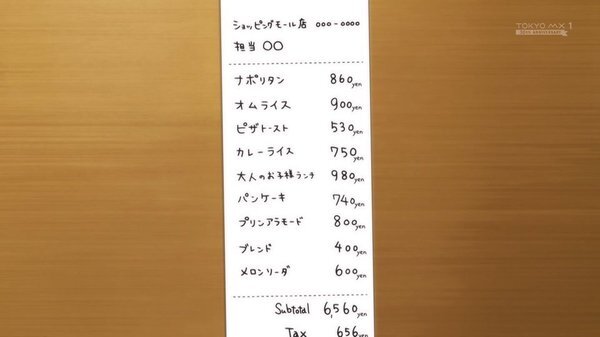 TOKYO MX 1
ショッピングモール店 000-0000
担当 〇〇
ナポリタン 860yen
オムライス 900yen
ピザトースト 530yen
カレーライス 750yen
大人のお子様ランチ 980yen
パンケーキ 740yen
プリンアラモード 800yen
ブレンド 400yen
メロンソーダ 600yen
Subtotal 6,560yen
Tax 656yen